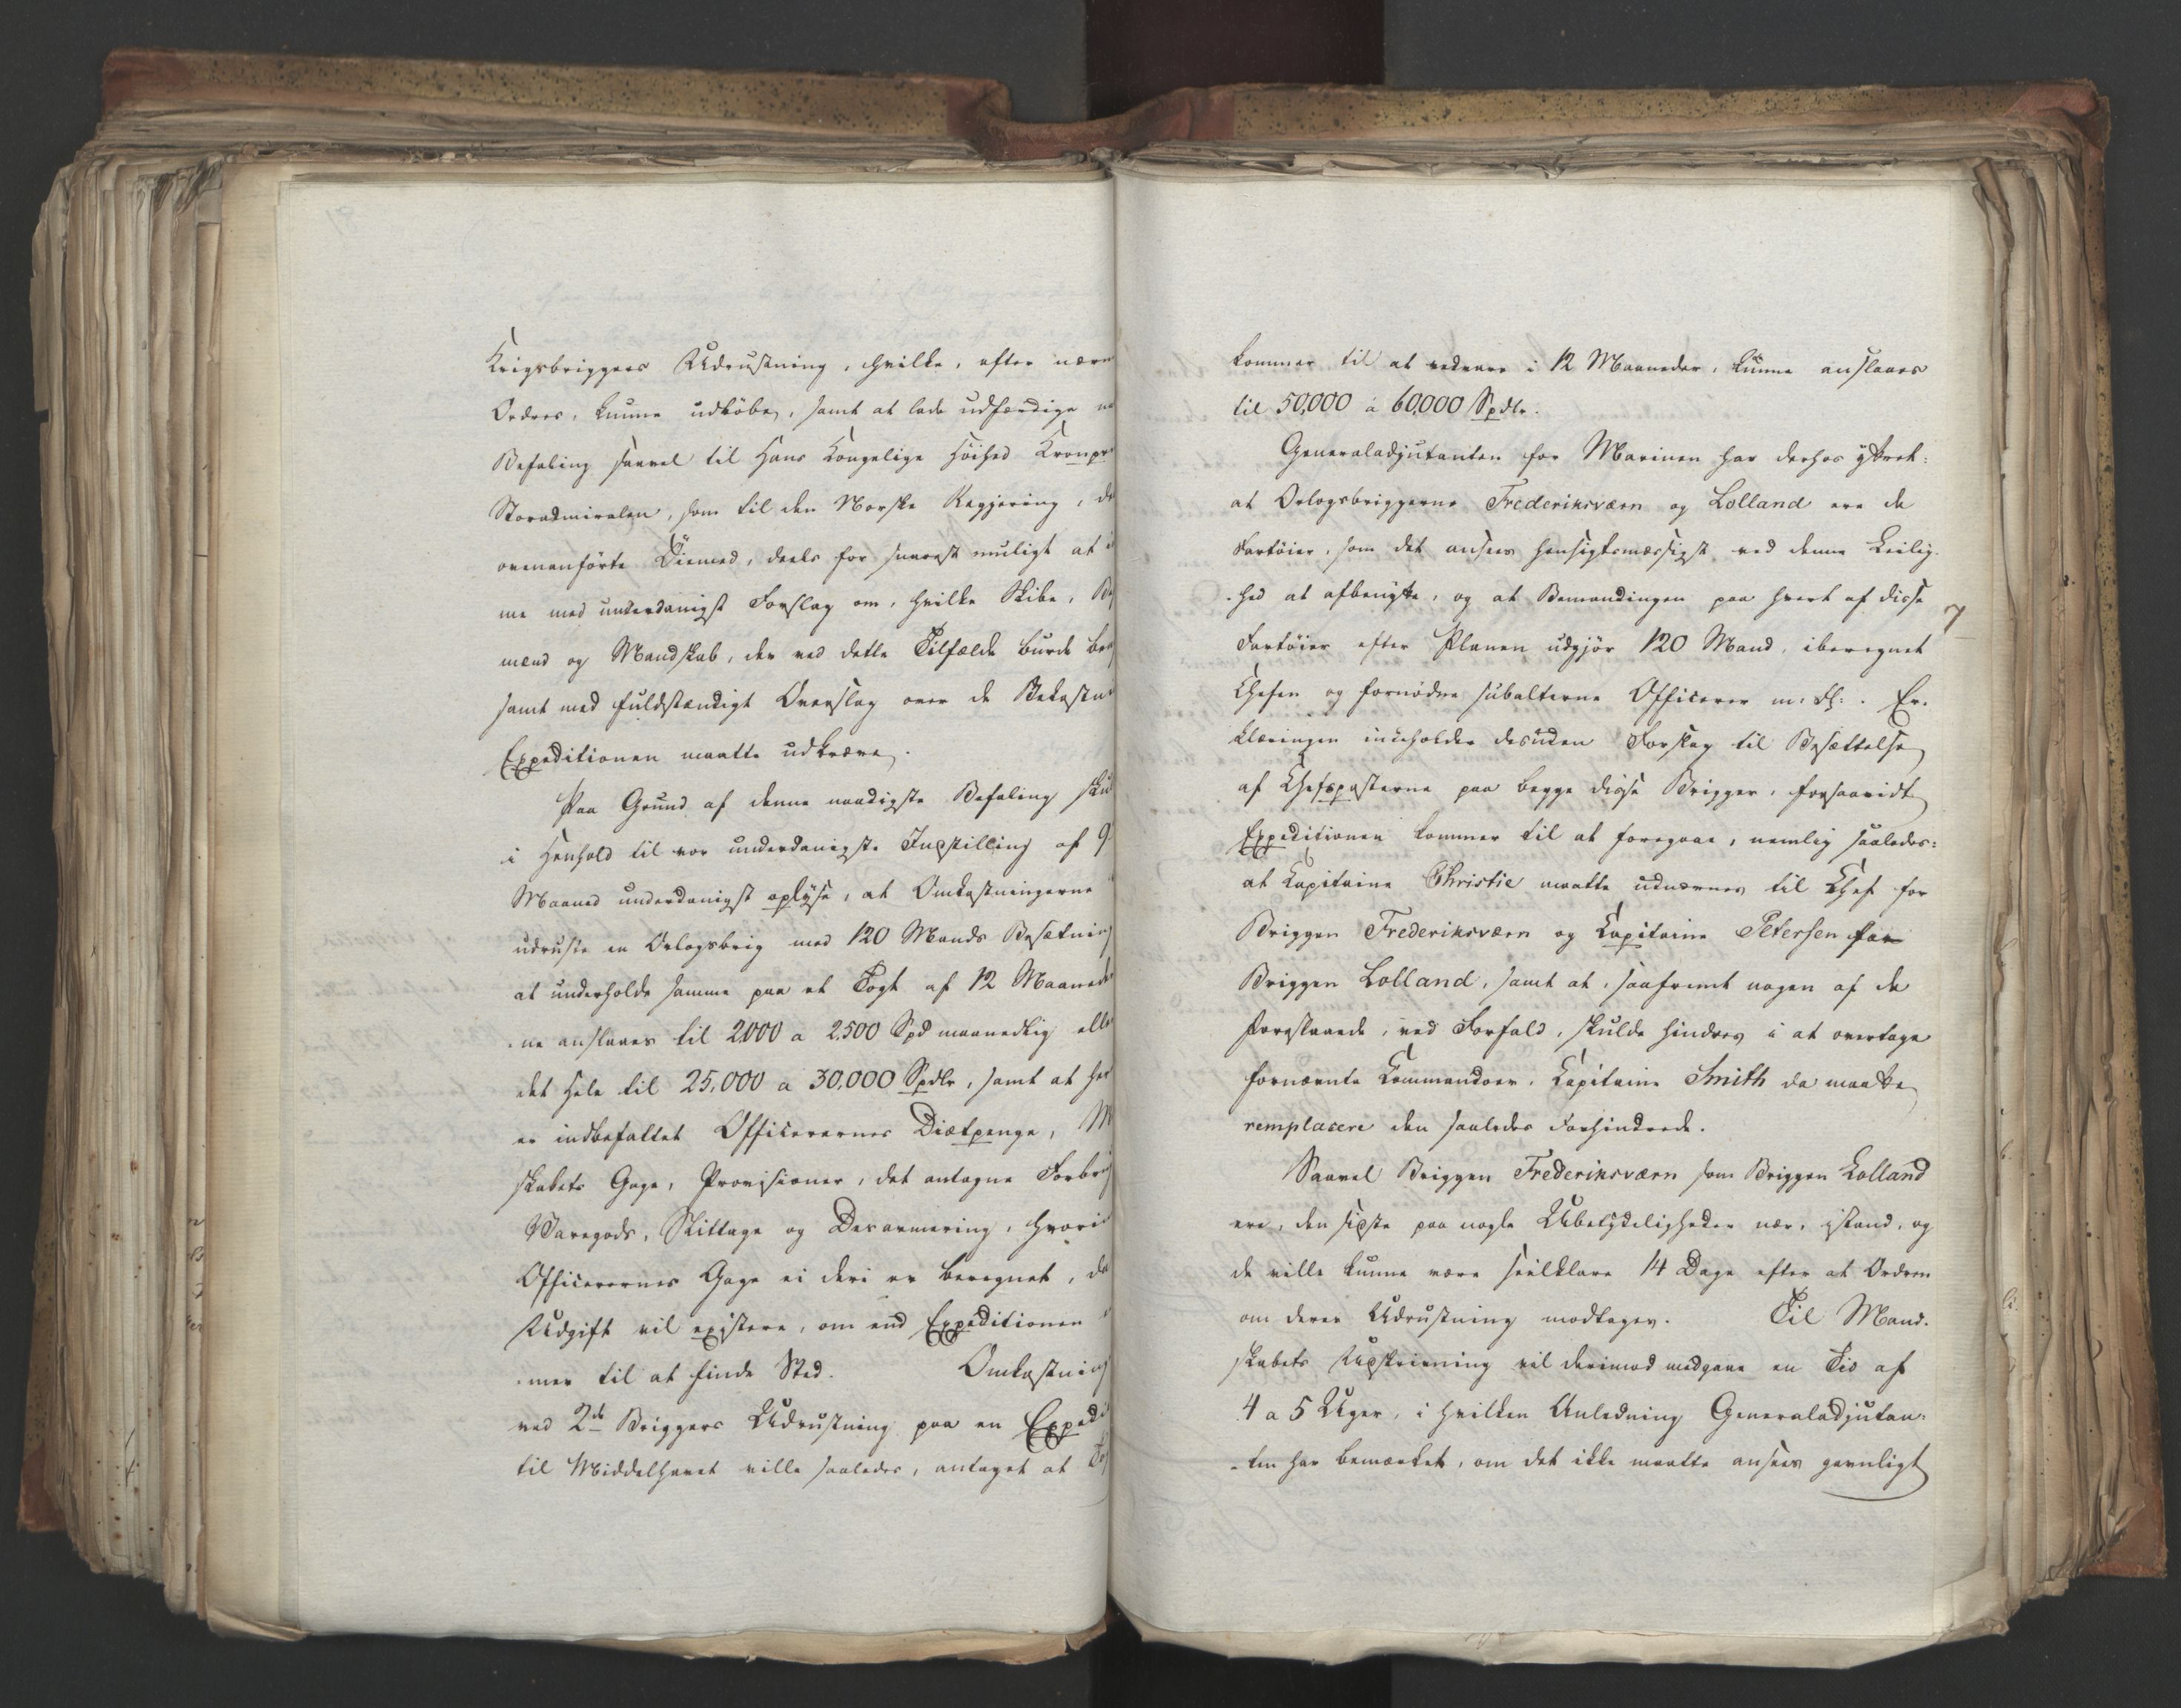 Krigsbriggers Udrustning, hvilke, efter nærm
Ordres, kunne udløbe, samt at lade udfærdige n
Befaling saavel til Hans Kongelige Høihed Kronpr
Storadmiralen, som til den Norske Regjering, de
ovenanførte Öiemed, deels for snarest muligt at i
me med underdanigst Forslag om, hvilke Skibe, B
mænd og Mandskab, der ved dette Tilfælde burde br
samt med fuldstændigt Overslag over de Bekostn
Expeditionen maatte udkræve.
Paa Grund af denne naadigste Befaling sku
i Henhold til vor underdanigste Indstilling af 9
Maaned underdanigst oplyse, at Omkostningerne
udruste en Orlogsbrig med 120 Mands Besætning
at underholde samme paa et Togt af 12 Maaneder
ne anslaaes til 2000 a 2500 Spd maanedlig elle
det Hele til 25,000 a 30,000 Spdlr, samt at her
er indbefattet Officerernes Diætpenge, M
skabets Gage, Provisioner, det antagne Forbru
Varegods, Slittage og Desarmering, hvori
Officerernes Gage ei deri er beregnet, da
Udgift vil existere, om end Expeditionen
mer til at finde Sted. Omkostning
ved 2de Briggers Udrustning paa en Expedi
til Middelhavet ville saaledes, antaget at To
kommer til at vedvare i 12 Maaneder, kunne anslaaes
til 50,000 à 60,000 Spdlr.
Generaladjutanten for Marinen har derhos yttret:
at Orlogsbriggerne Frederiksværn og Lolland ere de
Fartøier, som det ansees hensigtsmæssigst ved denne Leilig-
hed at afbenytte, og at Bemandingen paa hvert af disse
7
Fartøier efter Planen udgjør 120 Mand, iberegnet
Chefen og fornødne subalterne Officerer m: fl: . Er-
klæringen indeholder desuden Forslag til Besættelse
af Chefsposterne paa begge disse Brigger, forsaavidt
Expeditionen kommer til at foregaae, nemlig saaledes:
at Capitaine Christie maatte udnævnes til Chef for
Briggen Frederiksværn og Capitaine Petersen for
Briggen Lolland, samt at, saafremt nogen af de
foregaaende, ved Forfald, skulde hindres i at overtage
fornævnte Commandoer, Capitaine Smith da maatte
remplacere den saaledes Forhindrede.
Saavel Briggen Frederiksværn som Briggen Lolland
ere, den sidste paa nogle Ubetydeligheder nær, istand, og
de ville kunne være seilklare 14 Dage efter at Ordren
om deres Udrustning modtages. Til Mand-
skabets Udskrivning vil derimod medgaae en Tid af
4 a 5 Uger, i hvilken Anledning Generaladjutan-
ten har bemærket, om det ikke maatte ansees gavnligt